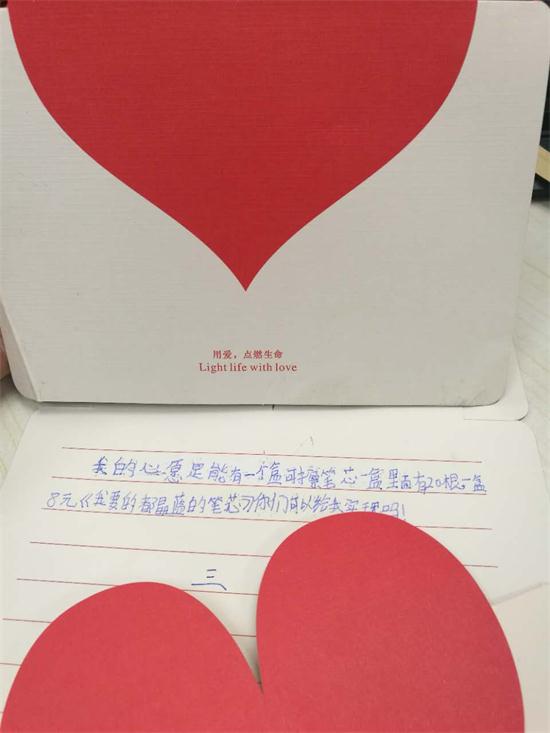 用爱，点燃生命
Light life with love
我的心愿是能有一个盒可擦笔芯一盒里面有20根一盒
8元《我要的都是蓝的笔芯》你们可以给我实现吗！
三